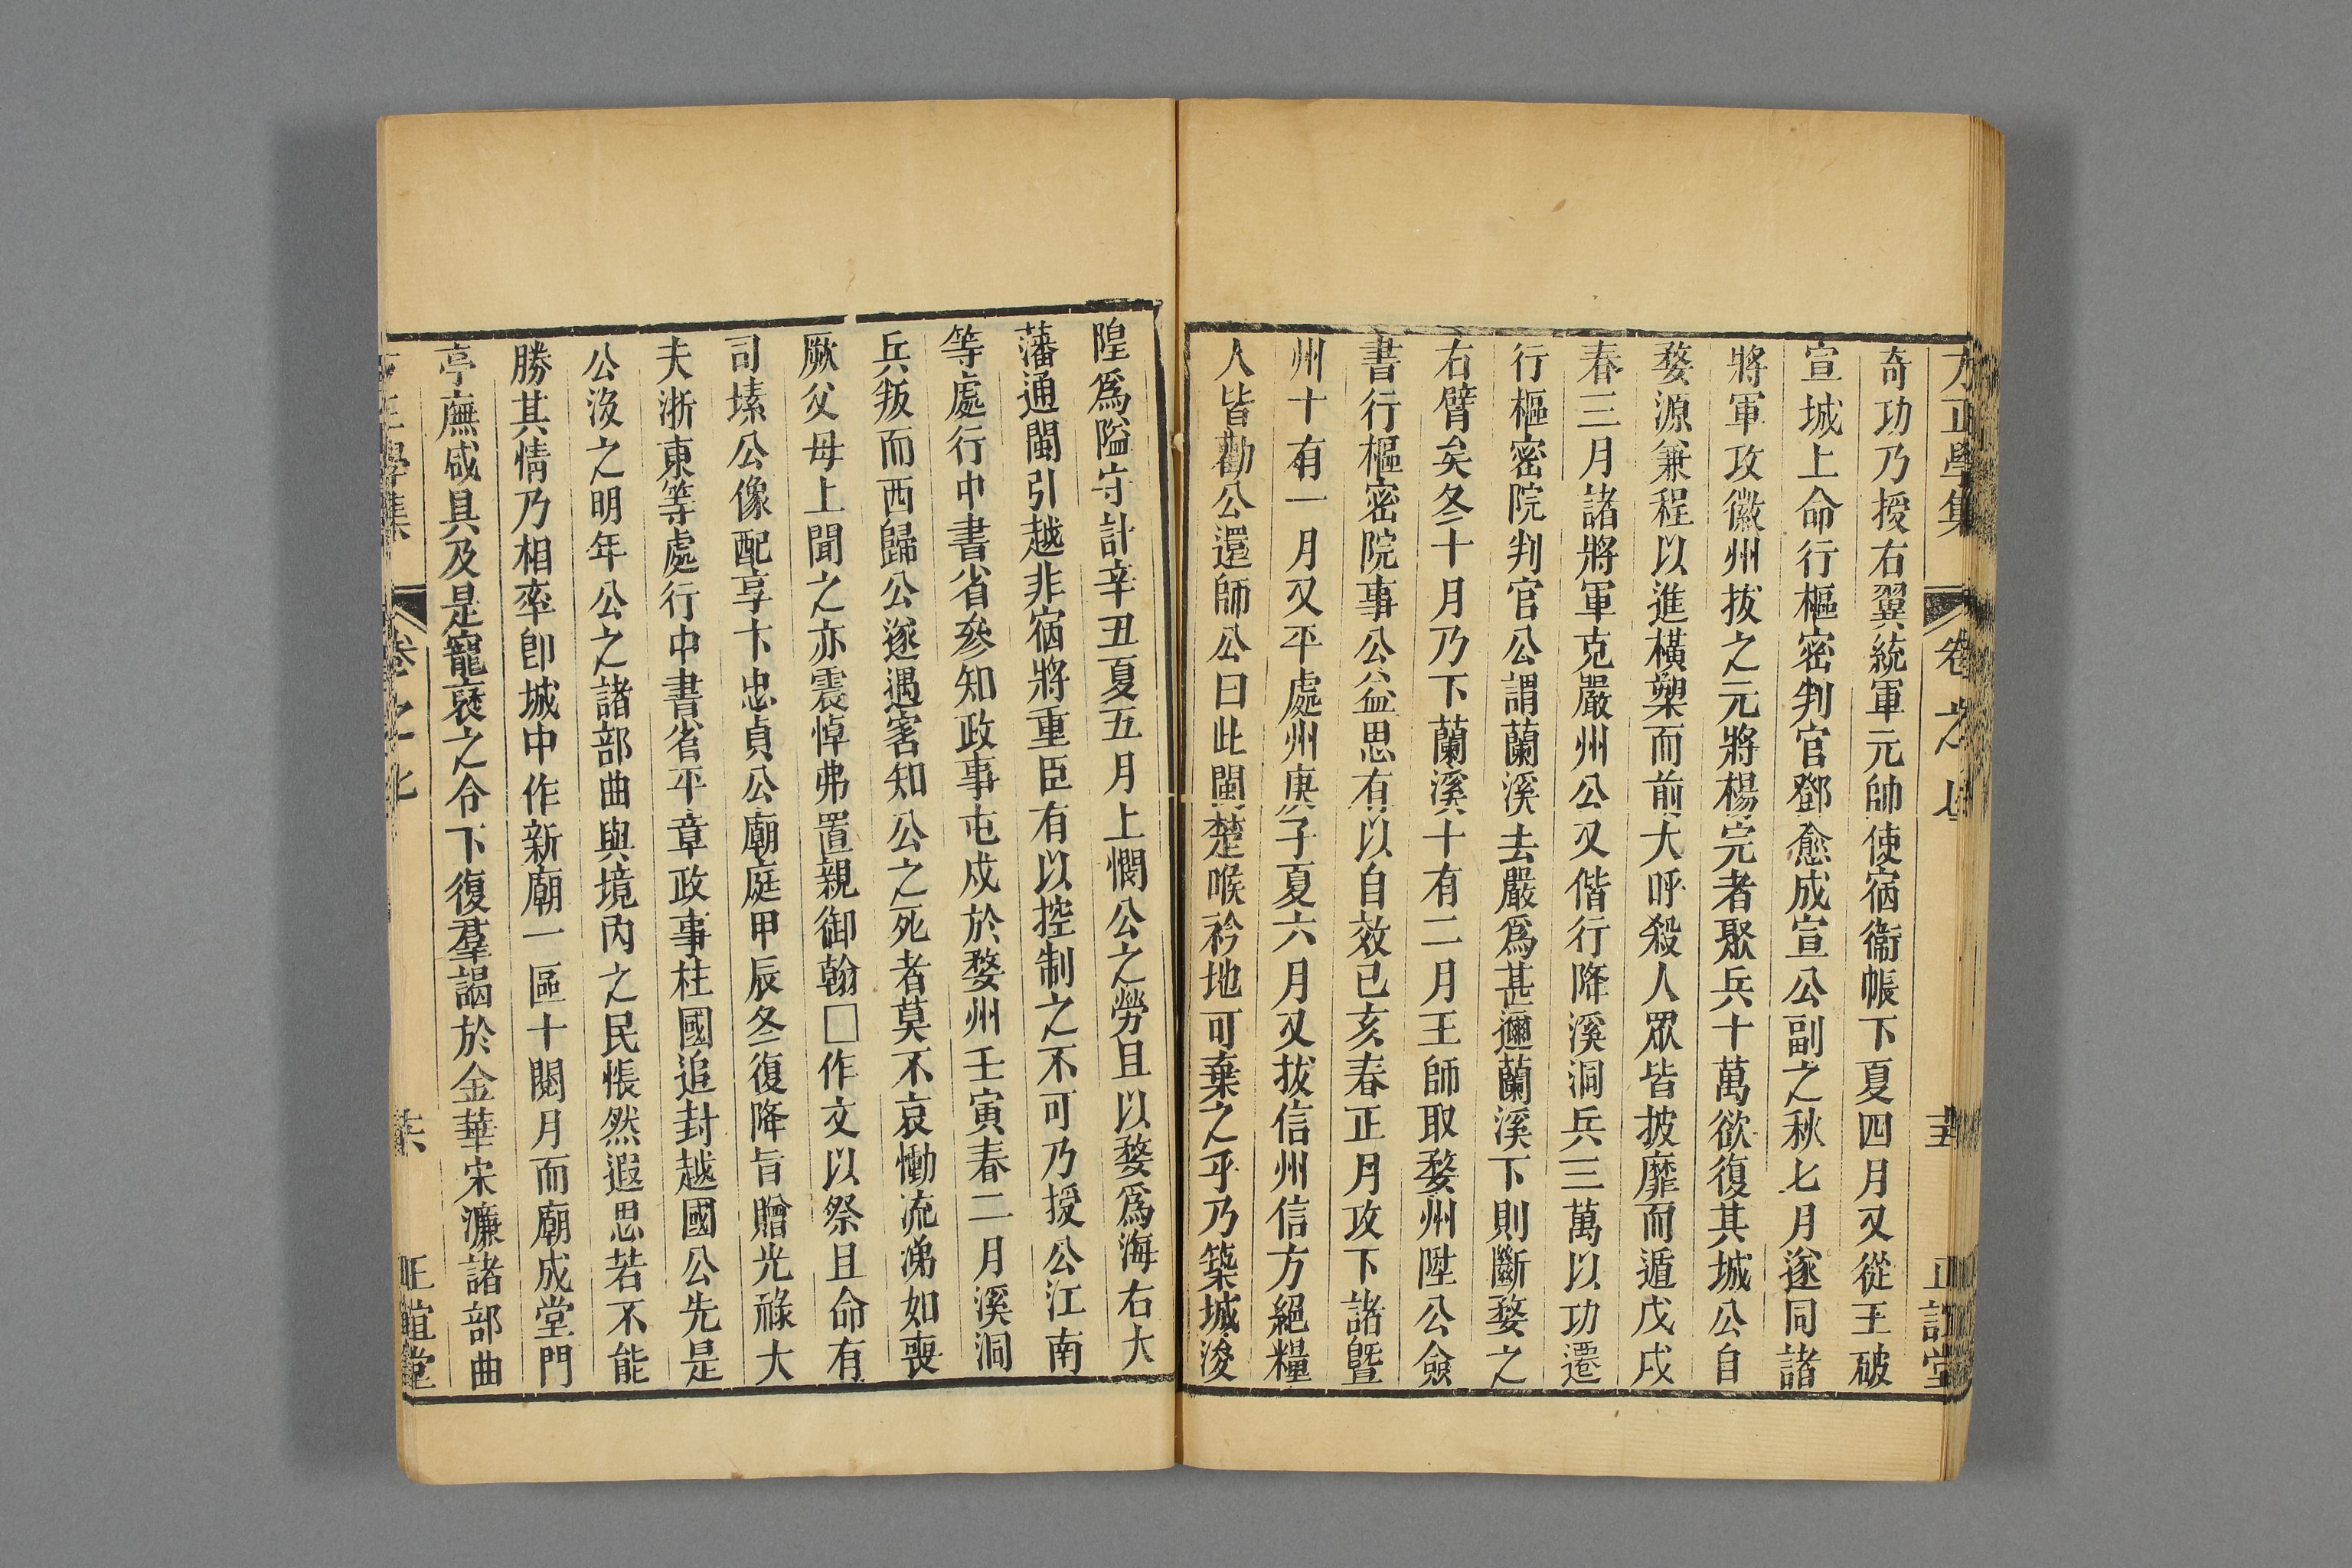 方正學集 卷之七 正誼堂
奇功乃授右翼統軍元帥使宿衞帳下夏四月又從王破
宣城上命行樞密判官鄧愈成宣公副之秋七月遂同諸
將軍攻徽州拔之元將楊完者聚兵十萬欲復其城公自
婺源兼程以進橫槊而前大呼殺人眾皆披靡而遁戊戌
春三月諸將軍克嚴州公又偕行降溪洞兵三萬以功遷
行樞密院判官公謂蘭溪去嚴爲甚邇蘭溪下則斷婺之
右臂矣冬十月乃下蘭溪十有二月王師取婺州陞公僉
書行樞密院事公益思有以自效已亥春正月攻下諸曁
州十有一月又平處州庚子夏六月又拔信州信方絕糧
人皆勸公還師公曰此閩楚喉衿地可棄之乎乃築城浚
隍爲隘守計辛丑夏五月上憫公之勞且以婺爲海右大
藩通閩引越非宿將重臣有以控制之不可乃授公江南
等處行中書省參知政事屯戍於婺州壬寅春二月溪洞
兵叛而西歸公遂遇害知公之死者莫不哀慟流涕如喪
厥父母上聞之亦震悼弗置親御翰□作文以祭且命有
司塐公像配享卞忠貞公廟庭甲辰冬復降旨贈光祿大
夫浙東等處行中書省平章政事柱國追封越國公先是
公沒之明年公之諸部曲與境內之民悵然遐思若不能
勝其情乃相率卽城中作新廟一區十閱月而廟成堂門
亭廡咸具及是寵褒之令下復羣謁於金華宋濂諸部曲
正學集 卷之七 正誼堂